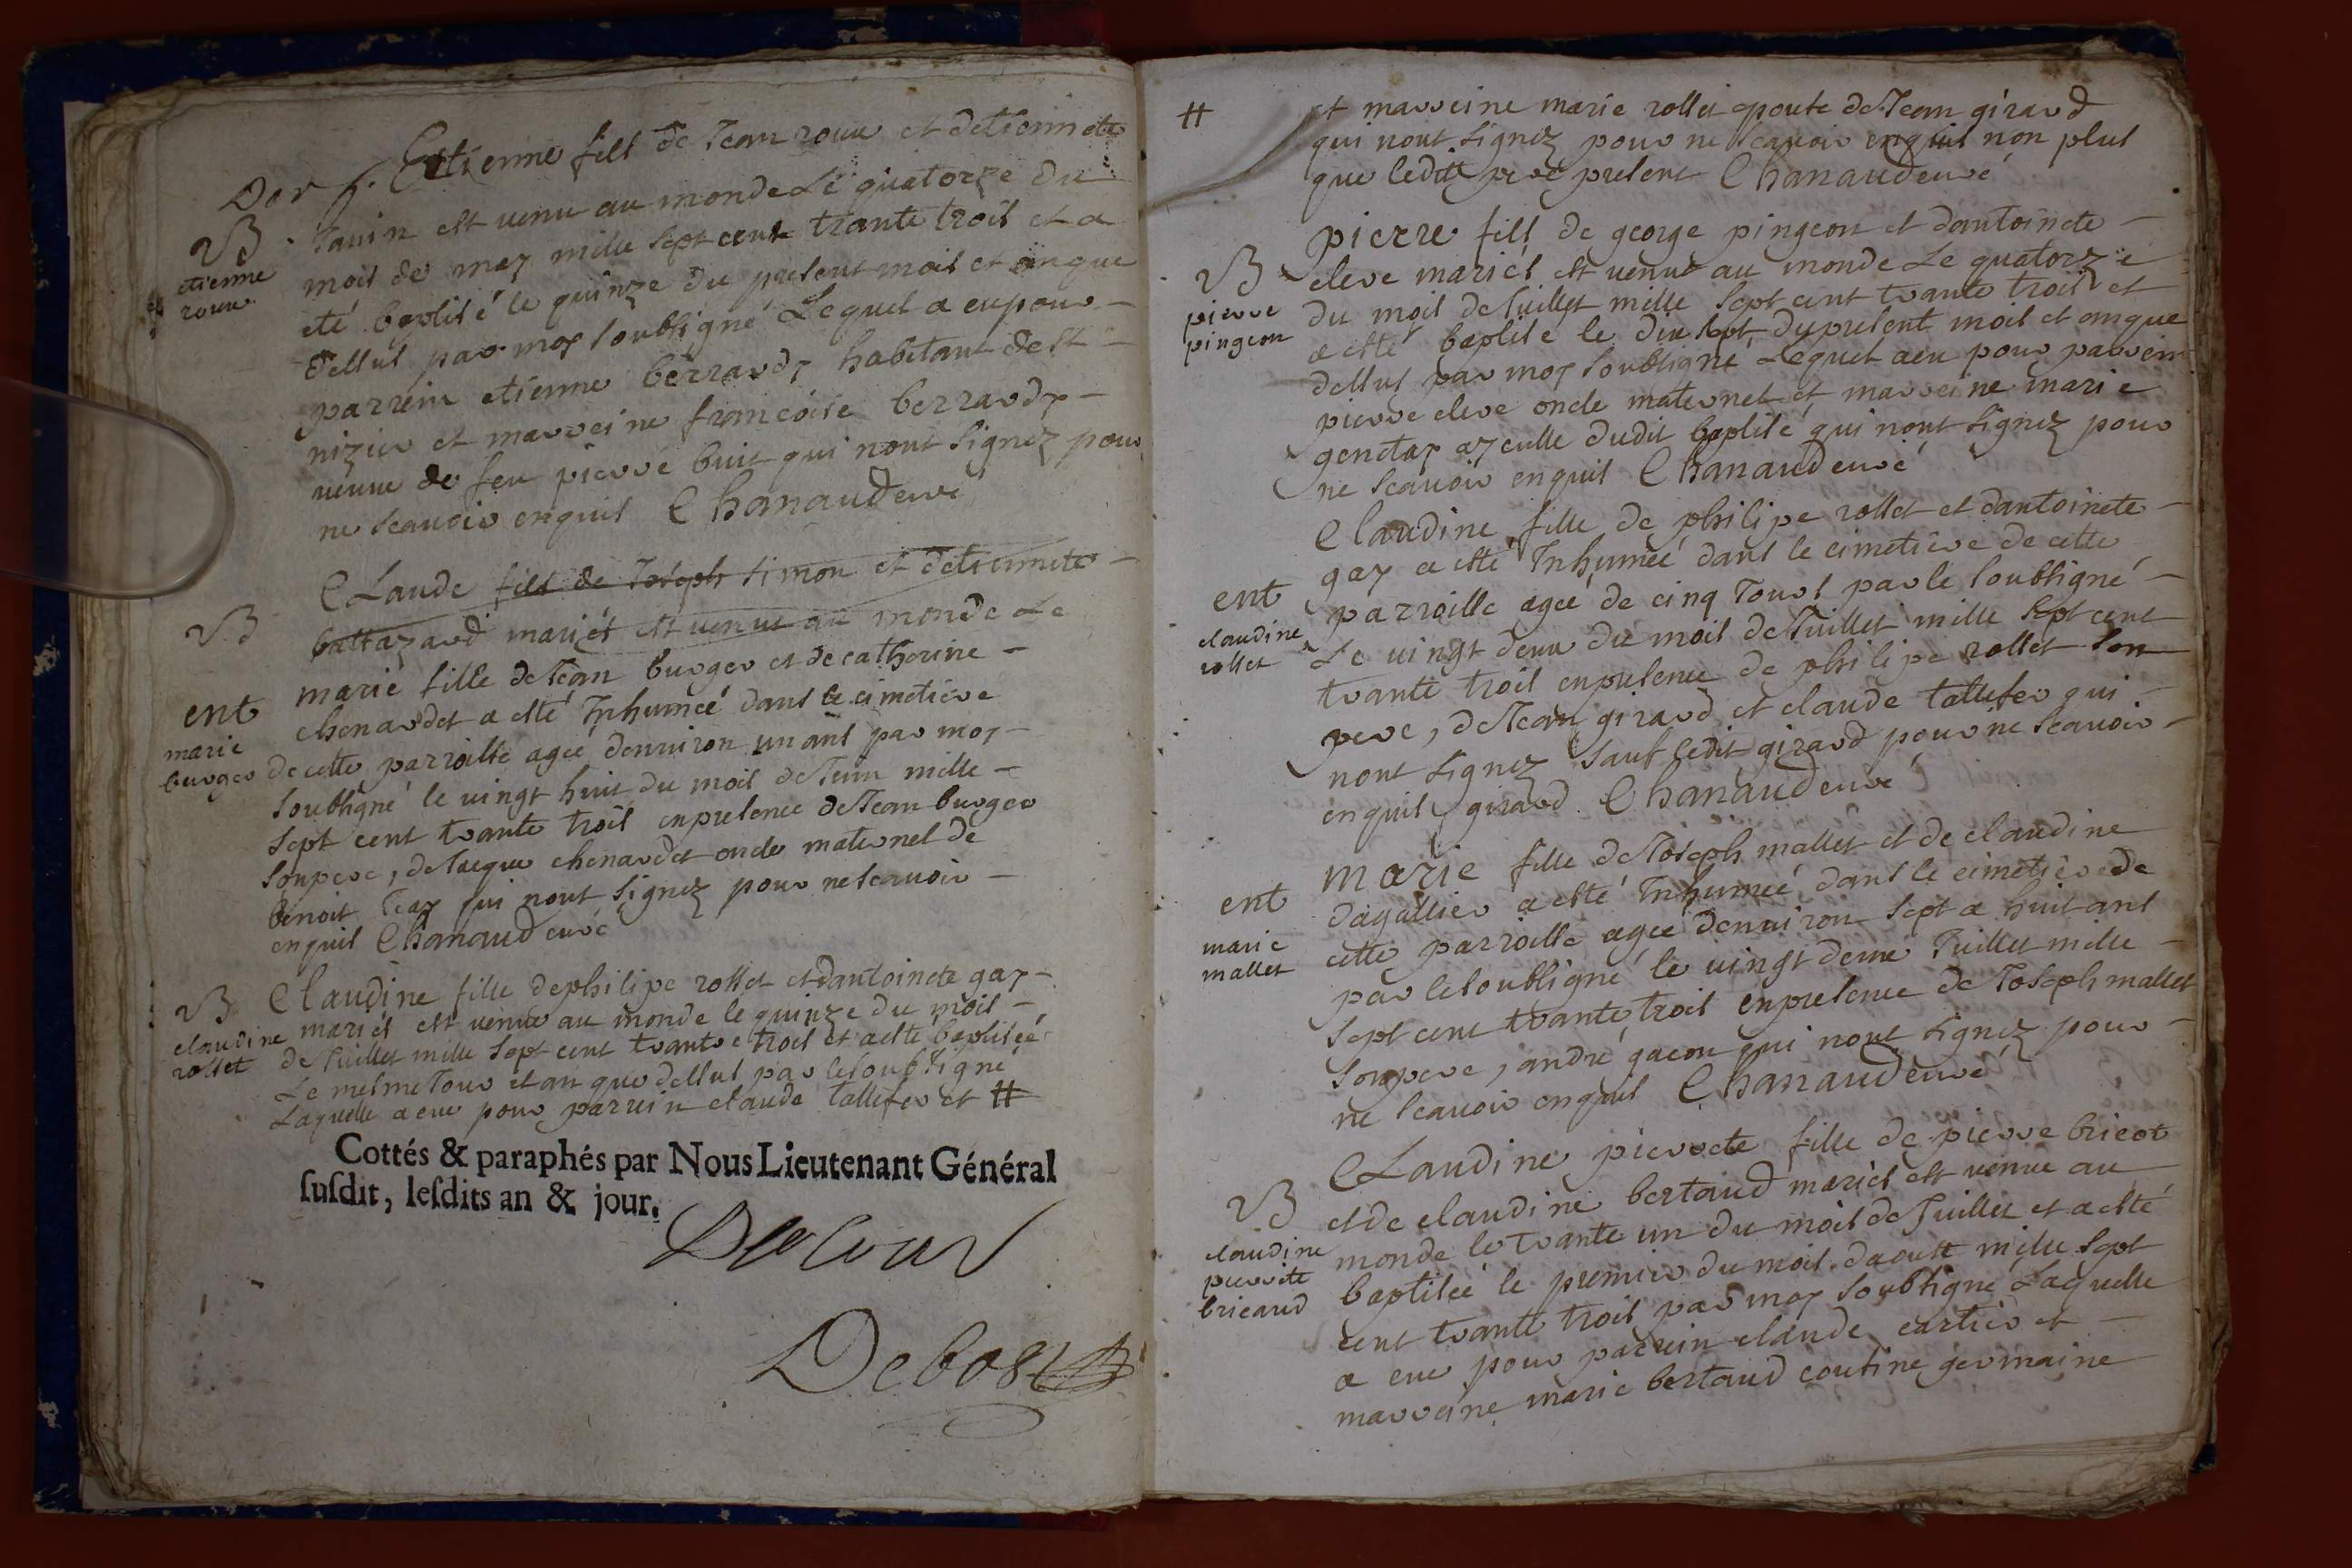 Etienne fils de Jean roux et detiennete
B Janin est venu au monde Le quatorze du
etienne roux
mois de may mille sept cent trante trois et a
eté baptisé le quinze du present mois et an que
dessus par moy soubsigné Lequel a eu pour
parrein etienne berrardy habitant de st
nizier et marreine francoise berrardy
veuve de feu pierre buis qui nont signez pour
ne scavoir enquis Chanaud curé
B CLaude fils de Joseph simon et detiennete
baltazard mariés est venu au monde Le
ent marie fille de Jean burger et de catherine
marie burger
chenardet a esté Inhumée dans le cimetiere
de cette parroisse agée denviron un ans par moy
soubsigné le vingt huit du mois de Juin mille
sept cent trante trois en presence de Jean burger
son pere, de Jacque chenardet oncle maternel de
benoit gay qui nont signez pour ne scavoir
enquis Chanaud curé
B Claudine fille de philipe rollet et dantoinete gay
claudine rollet
mariés est venue au monde le quinze du mois
de Juillet mille sept cent trante trois et a esté baptisée
Le mesme Jour et an que dessus par le soubsigné
Laquelle a eue pour parrein claude tallifer et #
Cottés & paraphés par Nous Lieutenant Général
ſuſdit, leſdits an & jour.
Debost
# et marreine marie rollet epouse de Jean girard
qui nont signez pour ne scavoir enquis non plus
que ledit pere present Chanaud curé
pierre fils de george pingeon et dantoinete
B eleve mariés est venu au monde Le quatorze
pierre pingeon
du mois de Juillet mille sept cent trante trois et
a esté baptisé le dix sept du present mois et an que
dessus par moy soubsigné Lequel a eu pour parrein
pierre eleve oncle maternel et marreine marie
genetay ayeulle dudit baptisé qui nont signez pour
ne scavoir enquis Chanaud curé
Claudine fille de philipe rollet et dantoinete
gay a esté Inhumée dans le cimetiere de cette
ent parroisse agée de cinq Jours par le soubsigné
claudine rollet
Le vingt deux du mois de Juillet mille sept cent
trante trois en presence de philipe rollet son
pere, de Jean girard et claude tallifer qui
nont signez sauf ledit girard pour ne scavoir
enquis girard Chanaud curé
marie fille de Joseph mallet et de claudine
ent dagallier a esté Inhumée dans le cimetiere de
marie mallet
cette parroisse agée denviron sept a huit ans
par le soubsigné le vingt deux Juillet mille
sept cent trante trois en presence de Joseph mallet
son pere, andré gacon qui nont signez pour
ne scavoir enquis Chanaud curé
CLaudine pierrete fille de pierre bricot
B et de claudine bertaud mariés est venue au
claudine pierrete bricaud
monde le trante un du mois de Juillet et a esté
baptisée le premier du mois daoust mille sept
cent trante trois par moy soubsigné Laquelle
a eue pour parrein claude cartier et
marreine marie bertaud cousine germaine